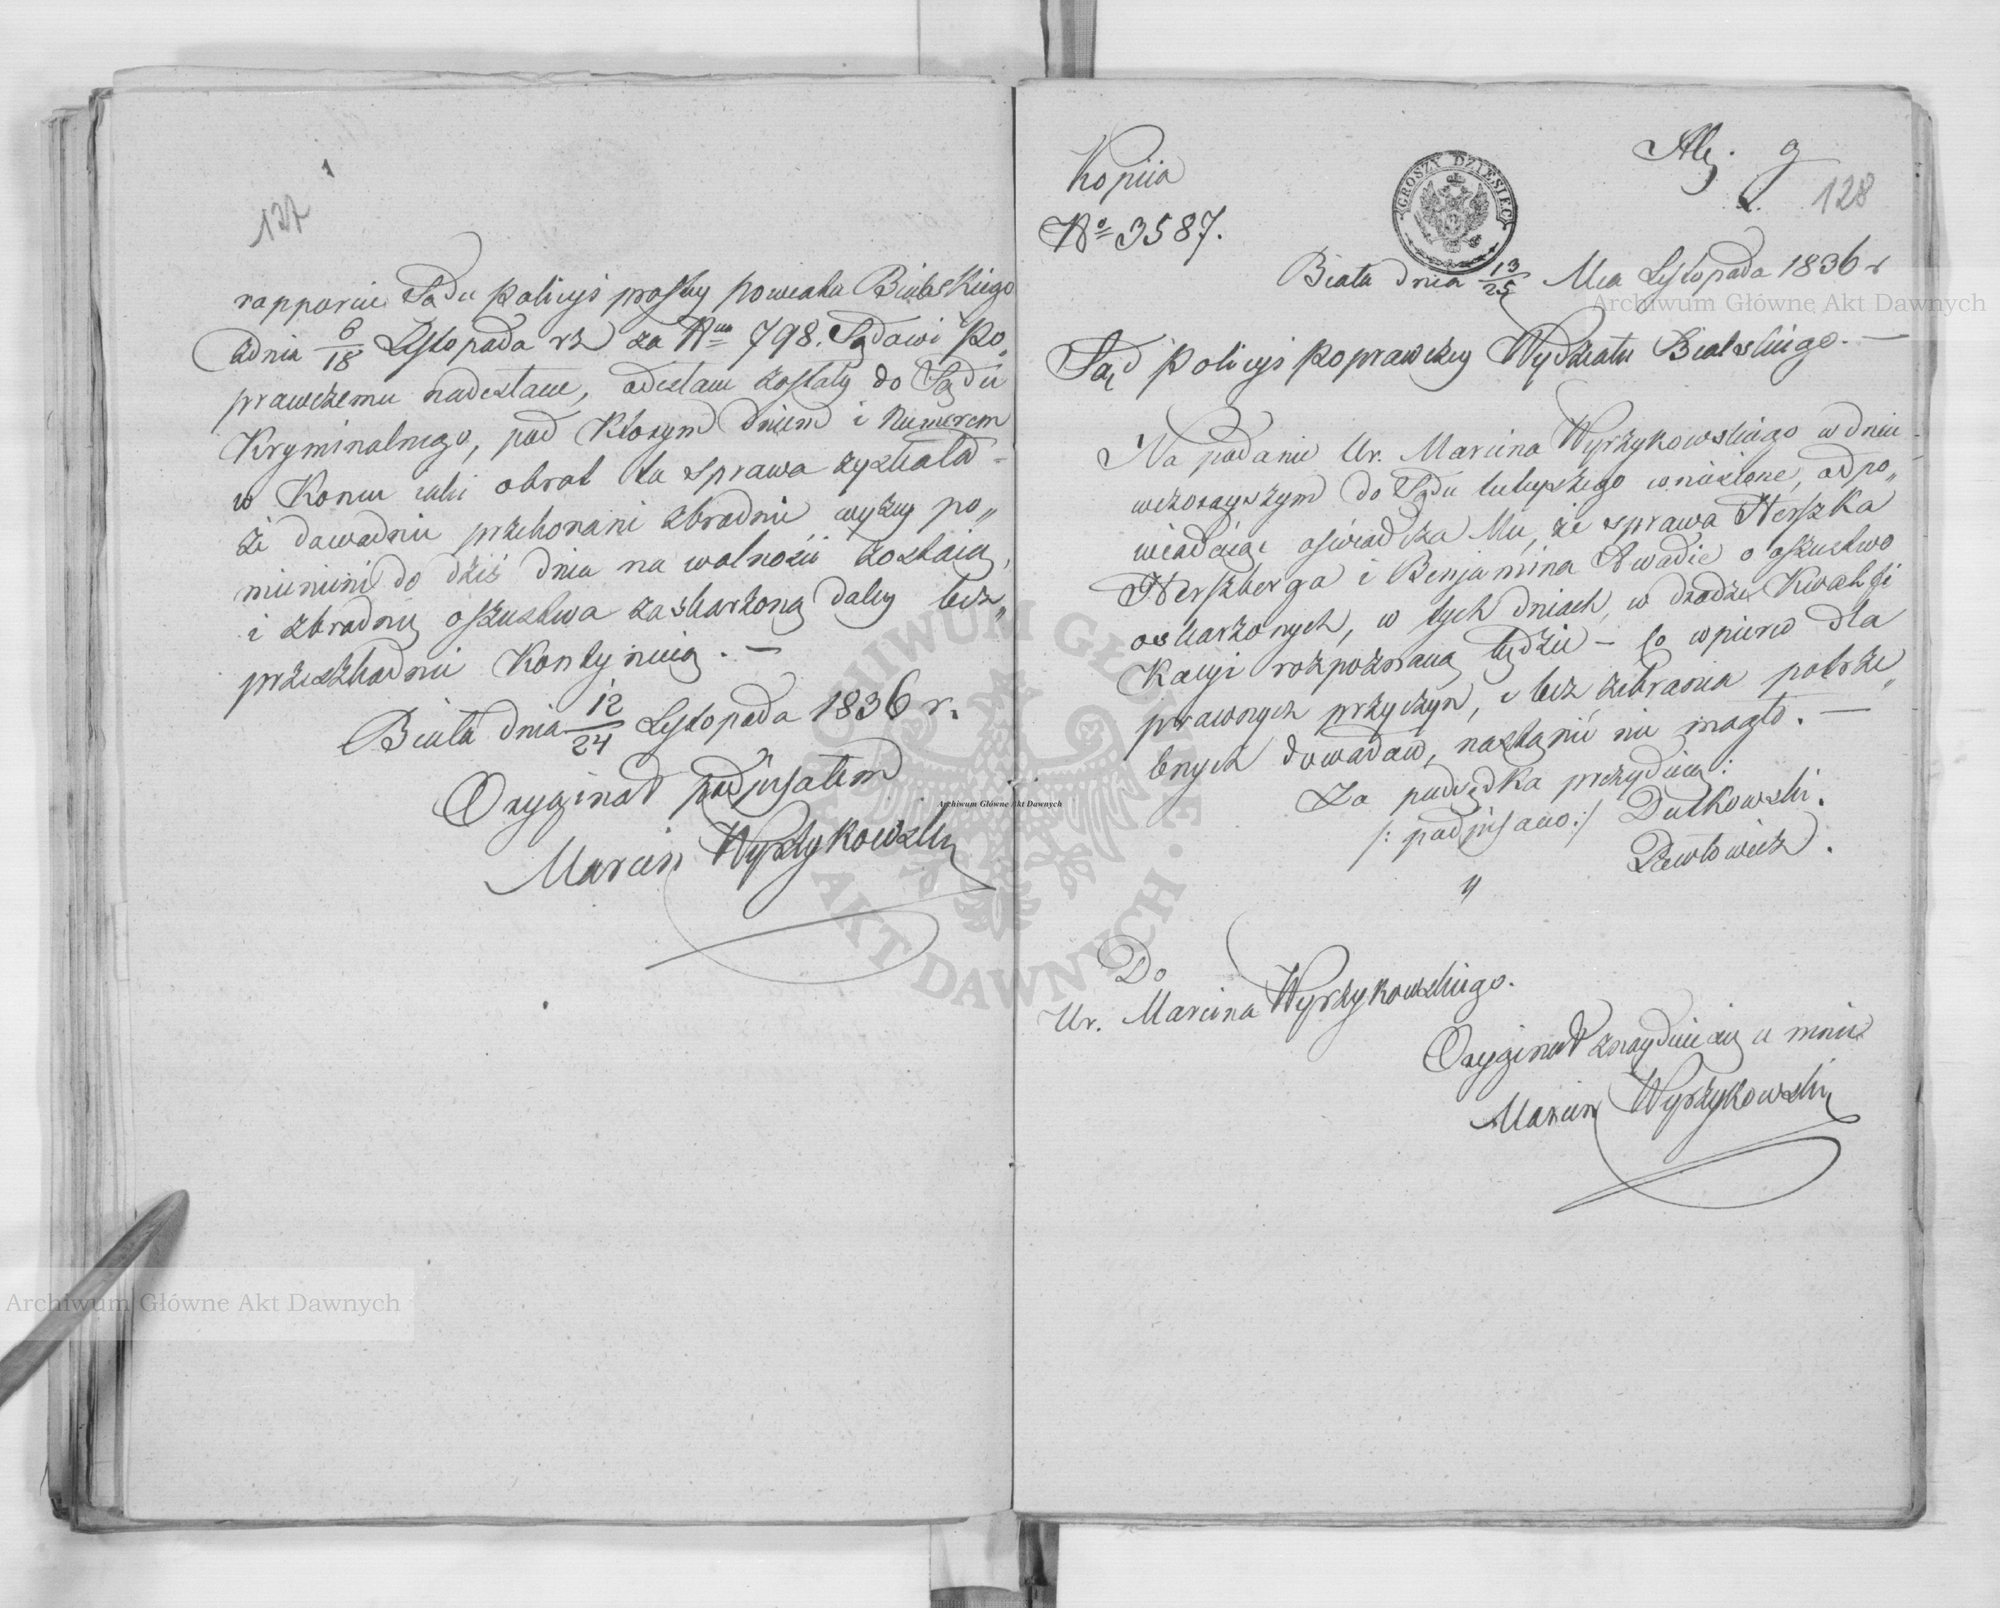 127
rapporcie Sądu Policyi prostey powiatu Bialskiego
z dnia 6/18 Listopada rb za Nrem 798. Sądowi Po„
prawczemu nadesłane, odesłane zostały do Sądu
Kryminalnego, pod którym dniem i Numerem
w Koncu iaki obrot ta sprawa zyskała
że dowodnie przekonani zbrodnie wyżey po„
mienieni do dziś dnia na wolności zostaią,
i zbrodnię oszustwa zaskarżoną daley bez„
przeszkodnie kontynuią. —
Biała dnia 12/24 Listopada 1836 r.
Oryginał podpisałem
Marcin Wyrzykowski
Kopiia
No 3587.
GROSZY DZIESIĘĆ
128
Biała dnia 13/25 Mca Listopada 1836 r
Sąd Policyi Poprawczey Wydziału Bialskiego. —
Na podanie Ur. Marcina Wyrzykowskiego w dniu
wczorayszym do Sądu tuteyszego wniesione, odpo„
wiadaiąc oświadcza Mu, że sprawa Herszka
Herszberga i Benjamina Awadie o oszustwo
oskarżonych, w tych dniach, w drodze Kwalifi
kacyi rozpoznaną będzie — co wpierw dla
prawnych przyczyn, i bez zebrania potrze„
bnych dowodow, nastąpić nie mogło. —
Za podsędka prezyduiąc:
/: podpisano :/ Dutkowski.
Pawłowicz.
Do
Ur. Marcina Wyrzykowskiego.
Oryginał znayduie się u mnie
Marcin Wyrzykowski
Archiwum Główne Akt Dawnych
Archiwum Główne Akt Dawnych
Archiwum Główne Akt Dawnych
ARCHIWUM GŁÓWNE AKT DAWNYCH